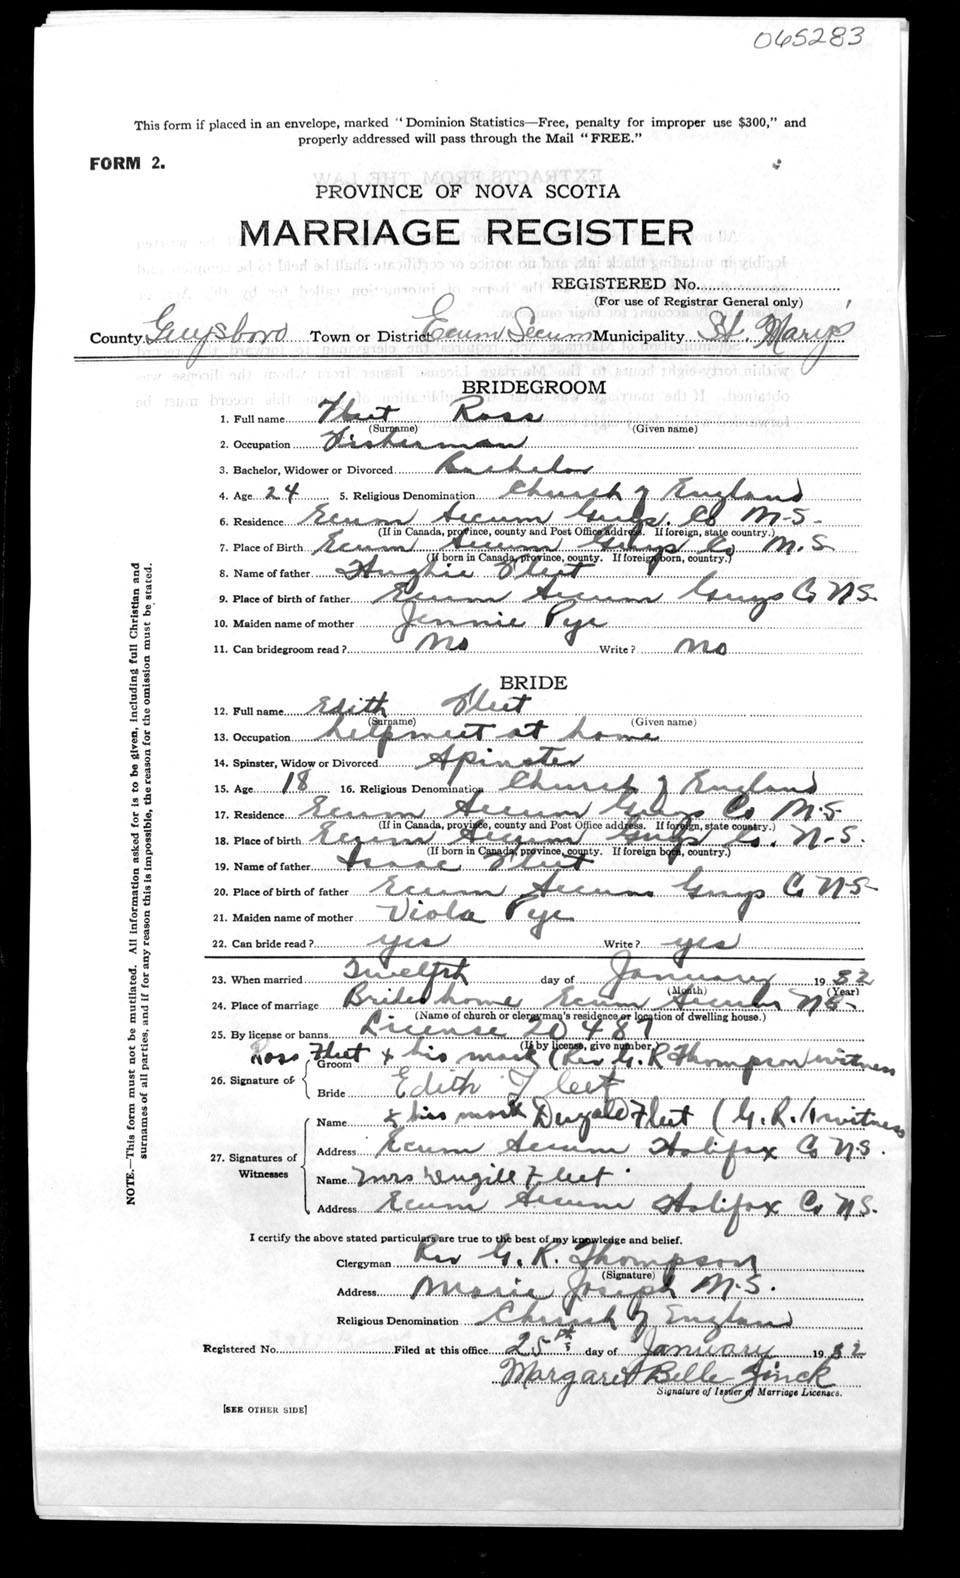 065283
This form if placed in an envelope, marked "Dominion Statistics—Free, penalty for improper use $300," and
properly addressed will pass through the Mail "FREE."
FORM 2.
PROVINCE OF NOVA SCOTIA
MARRIAGE REGISTER
REGISTERED No.
(For use of Registrar General only)
County Guysboro Town or District Ecum Secum Municipality St. Marys
BRIDEGROOM
1. Full name Fleet Ross
(Surname) (Given name)
2. Occupation Fisherman
3. Bachelor, Widower or Divorced Bachelor
4. Age 24 5. Religious Denomination Church of England
6. Residence Ecum Secum Guys. Co N.S.
(If in Canada, province, county and Post Office address. If foreign, state country.)
7. Place of Birth Ecum Secum Guys Co N.S
(If born in Canada, province, county. If foreign born, country.)
8. Name of father Hughie Fleet
9. Place of birth of father Ecum Secum Guys Co N.S.
10. Maiden name of mother Jennie Pye
11. Can bridegroom read? No Write? No
BRIDE
12. Full name Edith Fleet
(Surname) (Given name)
13. Occupation helpmeet at home
14. Spinster, Widow or Divorced Spinster
15. Age 18 16. Religious Denomination Church of England
17. Residence Ecum Secum Guys Co N.S
(If in Canada, province, county and Post Office address. If foreign, state country.)
18. Place of birth Ecum Secum Guys Co. N.S.
(If born in Canada, province, county. If foreign born, country.)
19. Name of father Isaac Fleet
20. Place of birth of father Ecum Secum Guys Co N.S
21. Maiden name of mother Viola Pye
22. Can bride read? yes Write? yes
23. When married Twelfth day of January 1932
(Month) (Year)
24. Place of marriage Brides home Ecum Secum N.S
(Name of church or clergyman's residence or location of dwelling house.)
25. By license or banns License 20487
(If by license, give number.)
Ross Fleet x his mark (Rev G. R Thompson) witness
Groom
26. Signature of
Bride Edith Fleet
x his mark Dugald Fleet (G. R. T) witness
Name
Address Ecum Secum Halifax Co N.S.
27. Signatures of
Witnesses
Name Mrs Dugill Fleet
Address Ecum Secum Halifax Co N.S.
I certify the above stated particulars are true to the best of my knowledge and belief.
Clergyman Rev G. R. Thompson
(Signature)
Address Marie Joseph N.S.
Religious Denomination Church of England
Registered No. Filed at this office 25th day of January 1932
Margaret Belle Jinck
Signature of Issuer of Marriage Licenses.
[SEE OTHER SIDE]
NOTE.—This form must not be mutilated. All information asked for is to be given, including full Christian and
surnames of all parties, and if for any reason this is impossible, the reason for the omission must be stated.